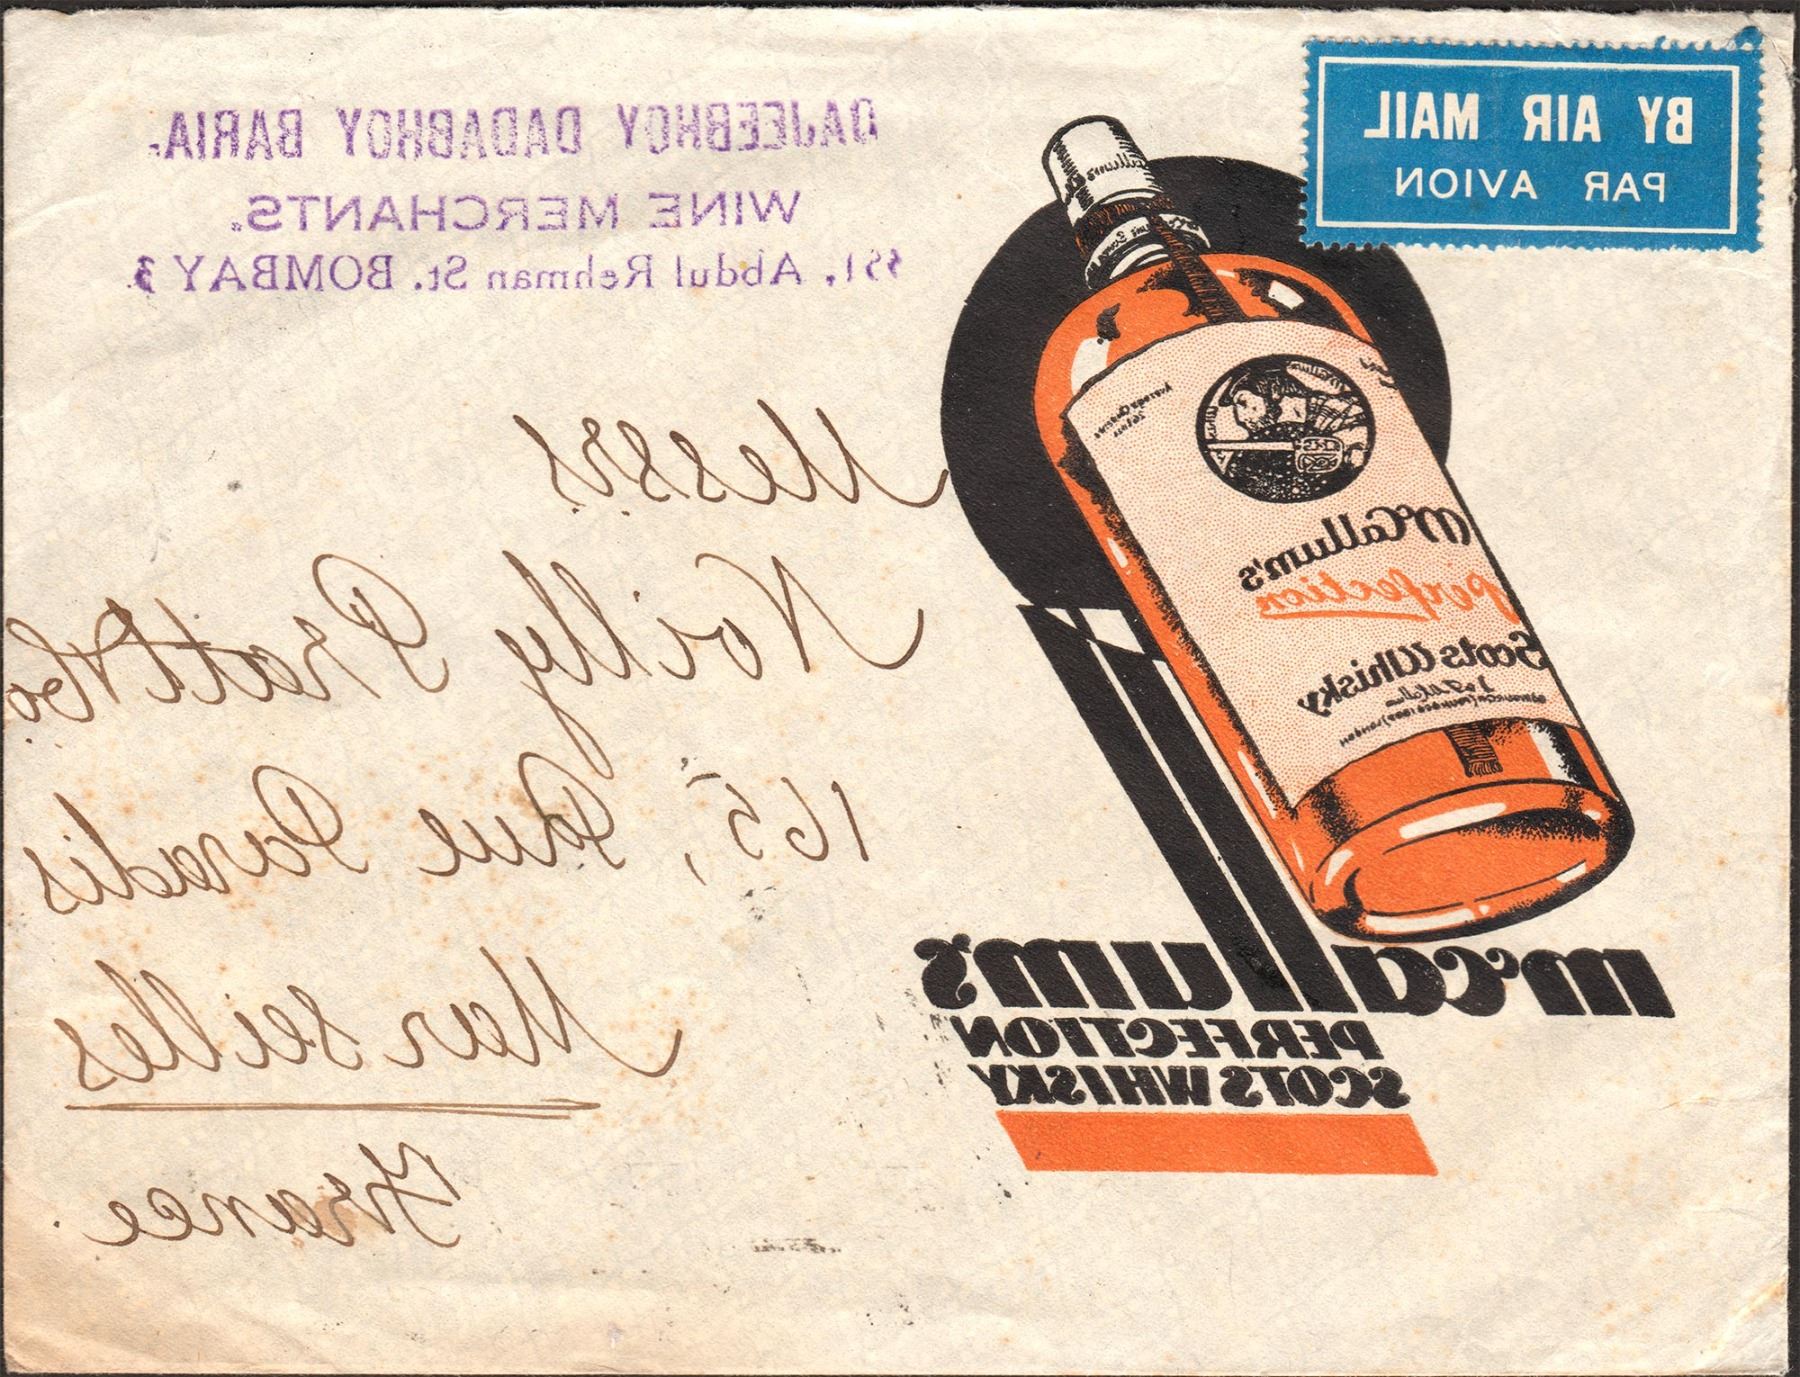 BY AIR MAIL
PAR AVION
DAJEEBHOY DADABHOY BARIA.
WINE MERCHANTS.
Abdul Rehman St. BOMBAY 3.
Messrs
Noilly Pratt & Co.
165, Rue Paradis
Marseilles
France.
McCallum's
Perfection
Scots Whisky
McCallum's
PERFECTION
SCOTS WHISKY